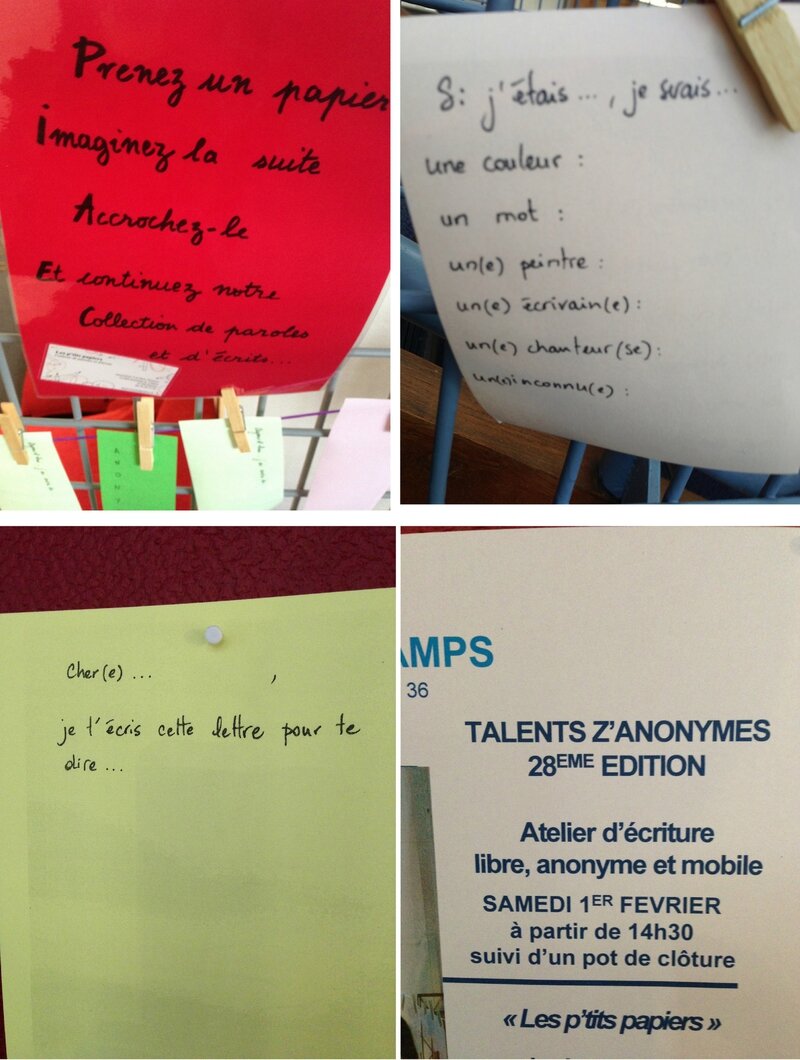 Prenez un papier
Imaginez la suite
Accrochez-le
Et continuez notre
Collection de paroles
et d'écrits...
Les p'tits papiers
ANONY
S: j'étais..., je serais...
une couleur :
un mot :
un(e) peintre :
un(e) écrivain(e) :
un(e) chanteur(se) :
un(e) inconnu(e) :
Cher(e) ... ,
je t'écris cette lettre pour te
dire...
AMPS
36
TALENTS Z'ANONYMES
28EME EDITION
Atelier d'écriture
libre, anonyme et mobile
SAMEDI 1ER FEVRIER
à partir de 14h30
suivi d'un pot de clôture
« Les p'tits papiers »